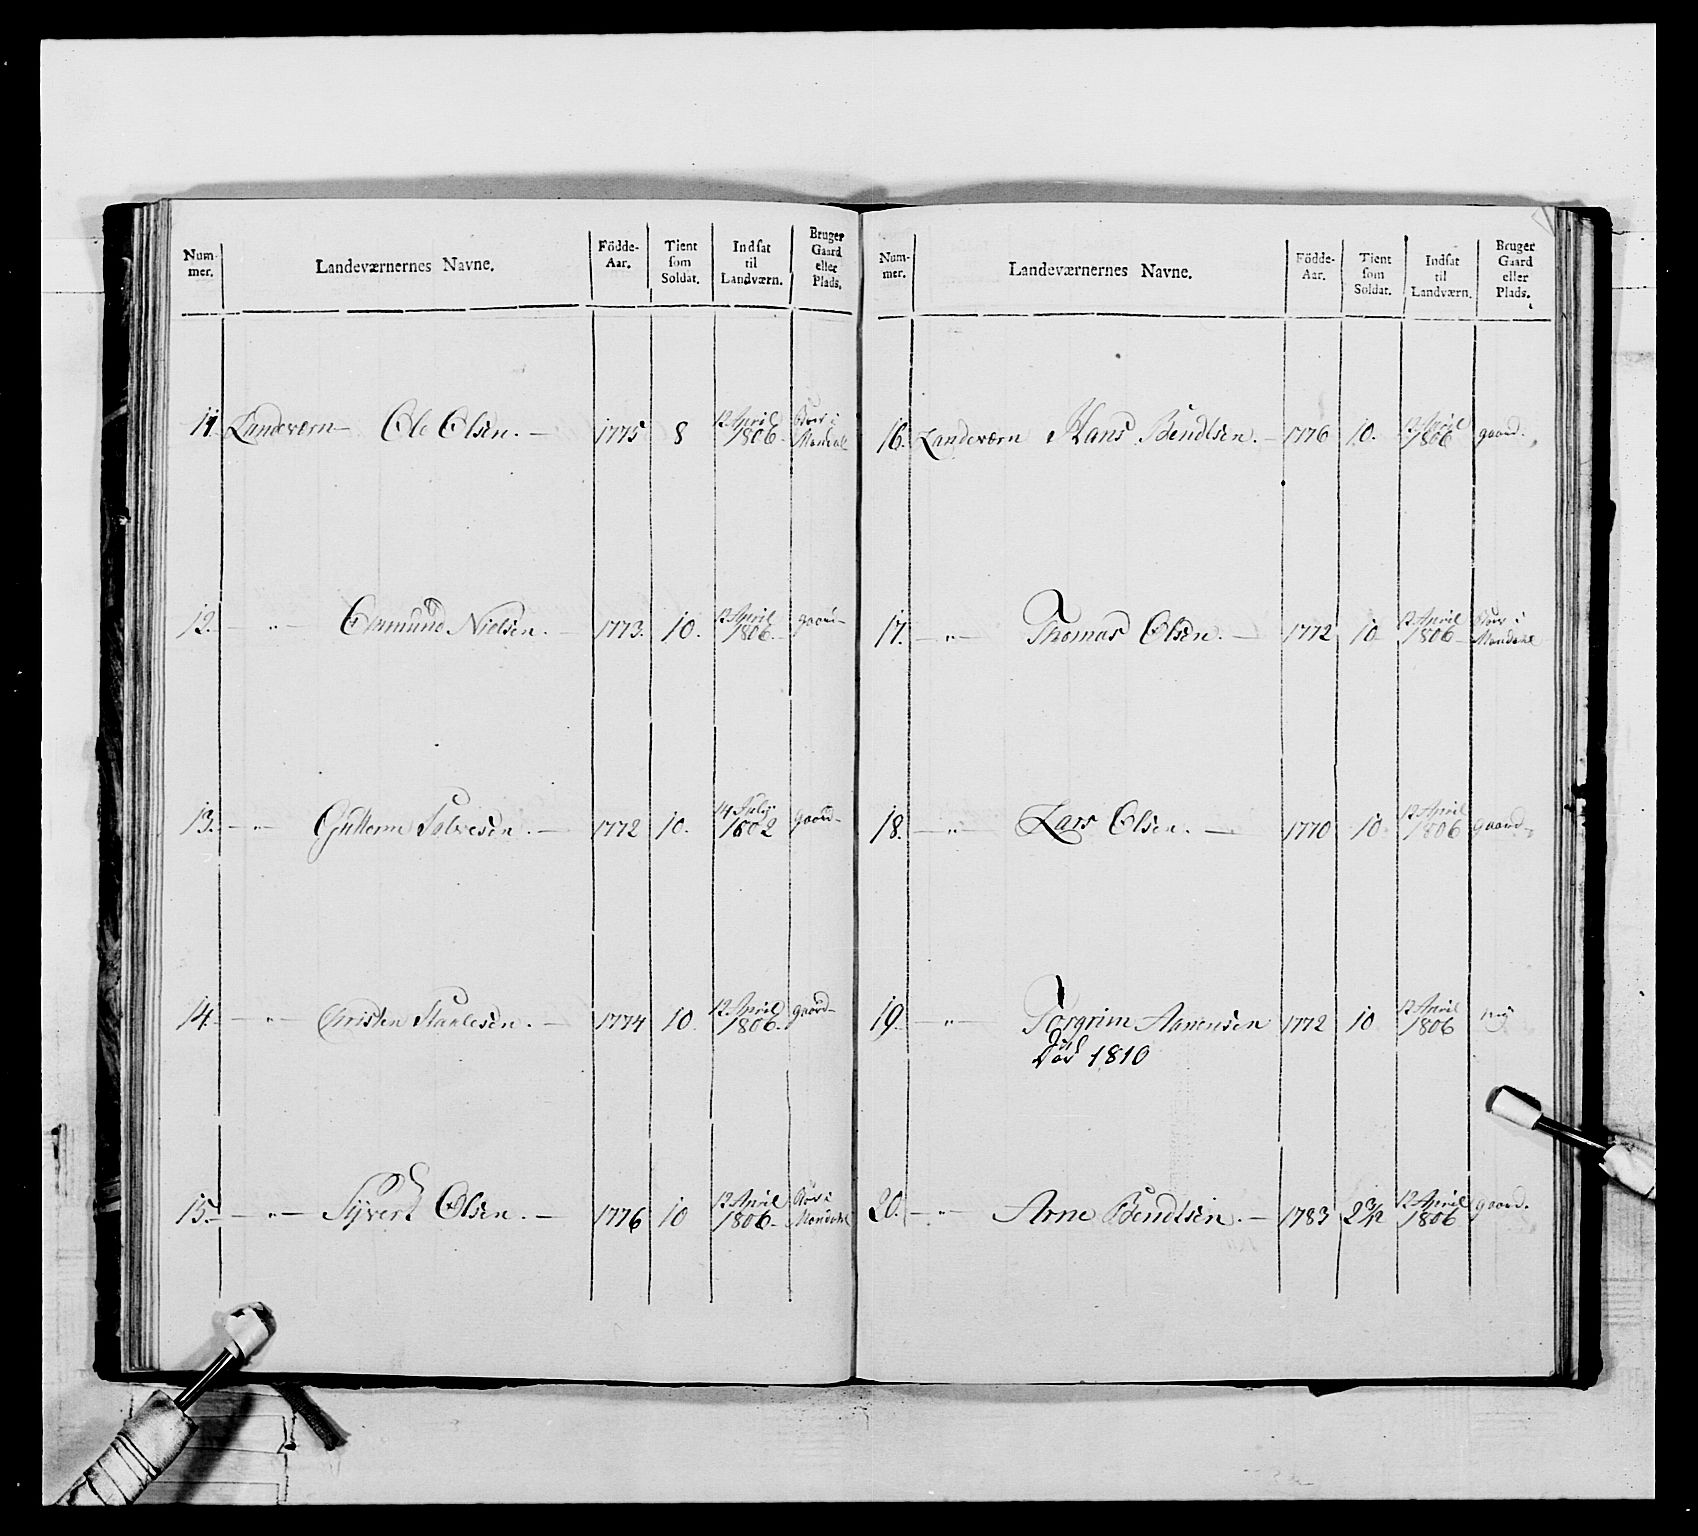 Num-
mer.
Landeværnernes Navne.
Födde-
Aar.
Tient
som
Soldat.
Indsat
til
Landværn.
Bruger
Gaard
eller
Plads.
11. Landeværn Ole Olsen. 1775 8 12 April 1806. Boer i Mandal
12. — " — Aamund Nielsen. 1773. 10. 12 April 1806. gaard
13. — " — Guttorm Salvesen. 1772 10. 14 July 1802 gaard
14. — " — Christen Staalesen. 1774 10. 12 April 1806. gaard
15. — " — Syvert Olsen. 1776 10 12 April 1806 Boer i Mandahl
Num-
mer.
Landeværnernes Navne.
Födde-
Aar.
Tient
som
Soldat.
Indsat
til
Landværn.
Bruger
Gaard
eller
Plads.
16. Landeværn Hans Bendtsen. 1776 10. 12 April 1806 gaard.
17. — " — Thomas Olsen. 1772 10 12 April 1806 Boer i Mandahl
18. — " — Lars Olsen. 1770 10 12 April 1806 gaard
19. — " — Torgrim Aanensen 1772 10 12 April 1806 nej
Död 1810
20. — " — Arne Bendtsen. 1783 12 April 1806 gaard.